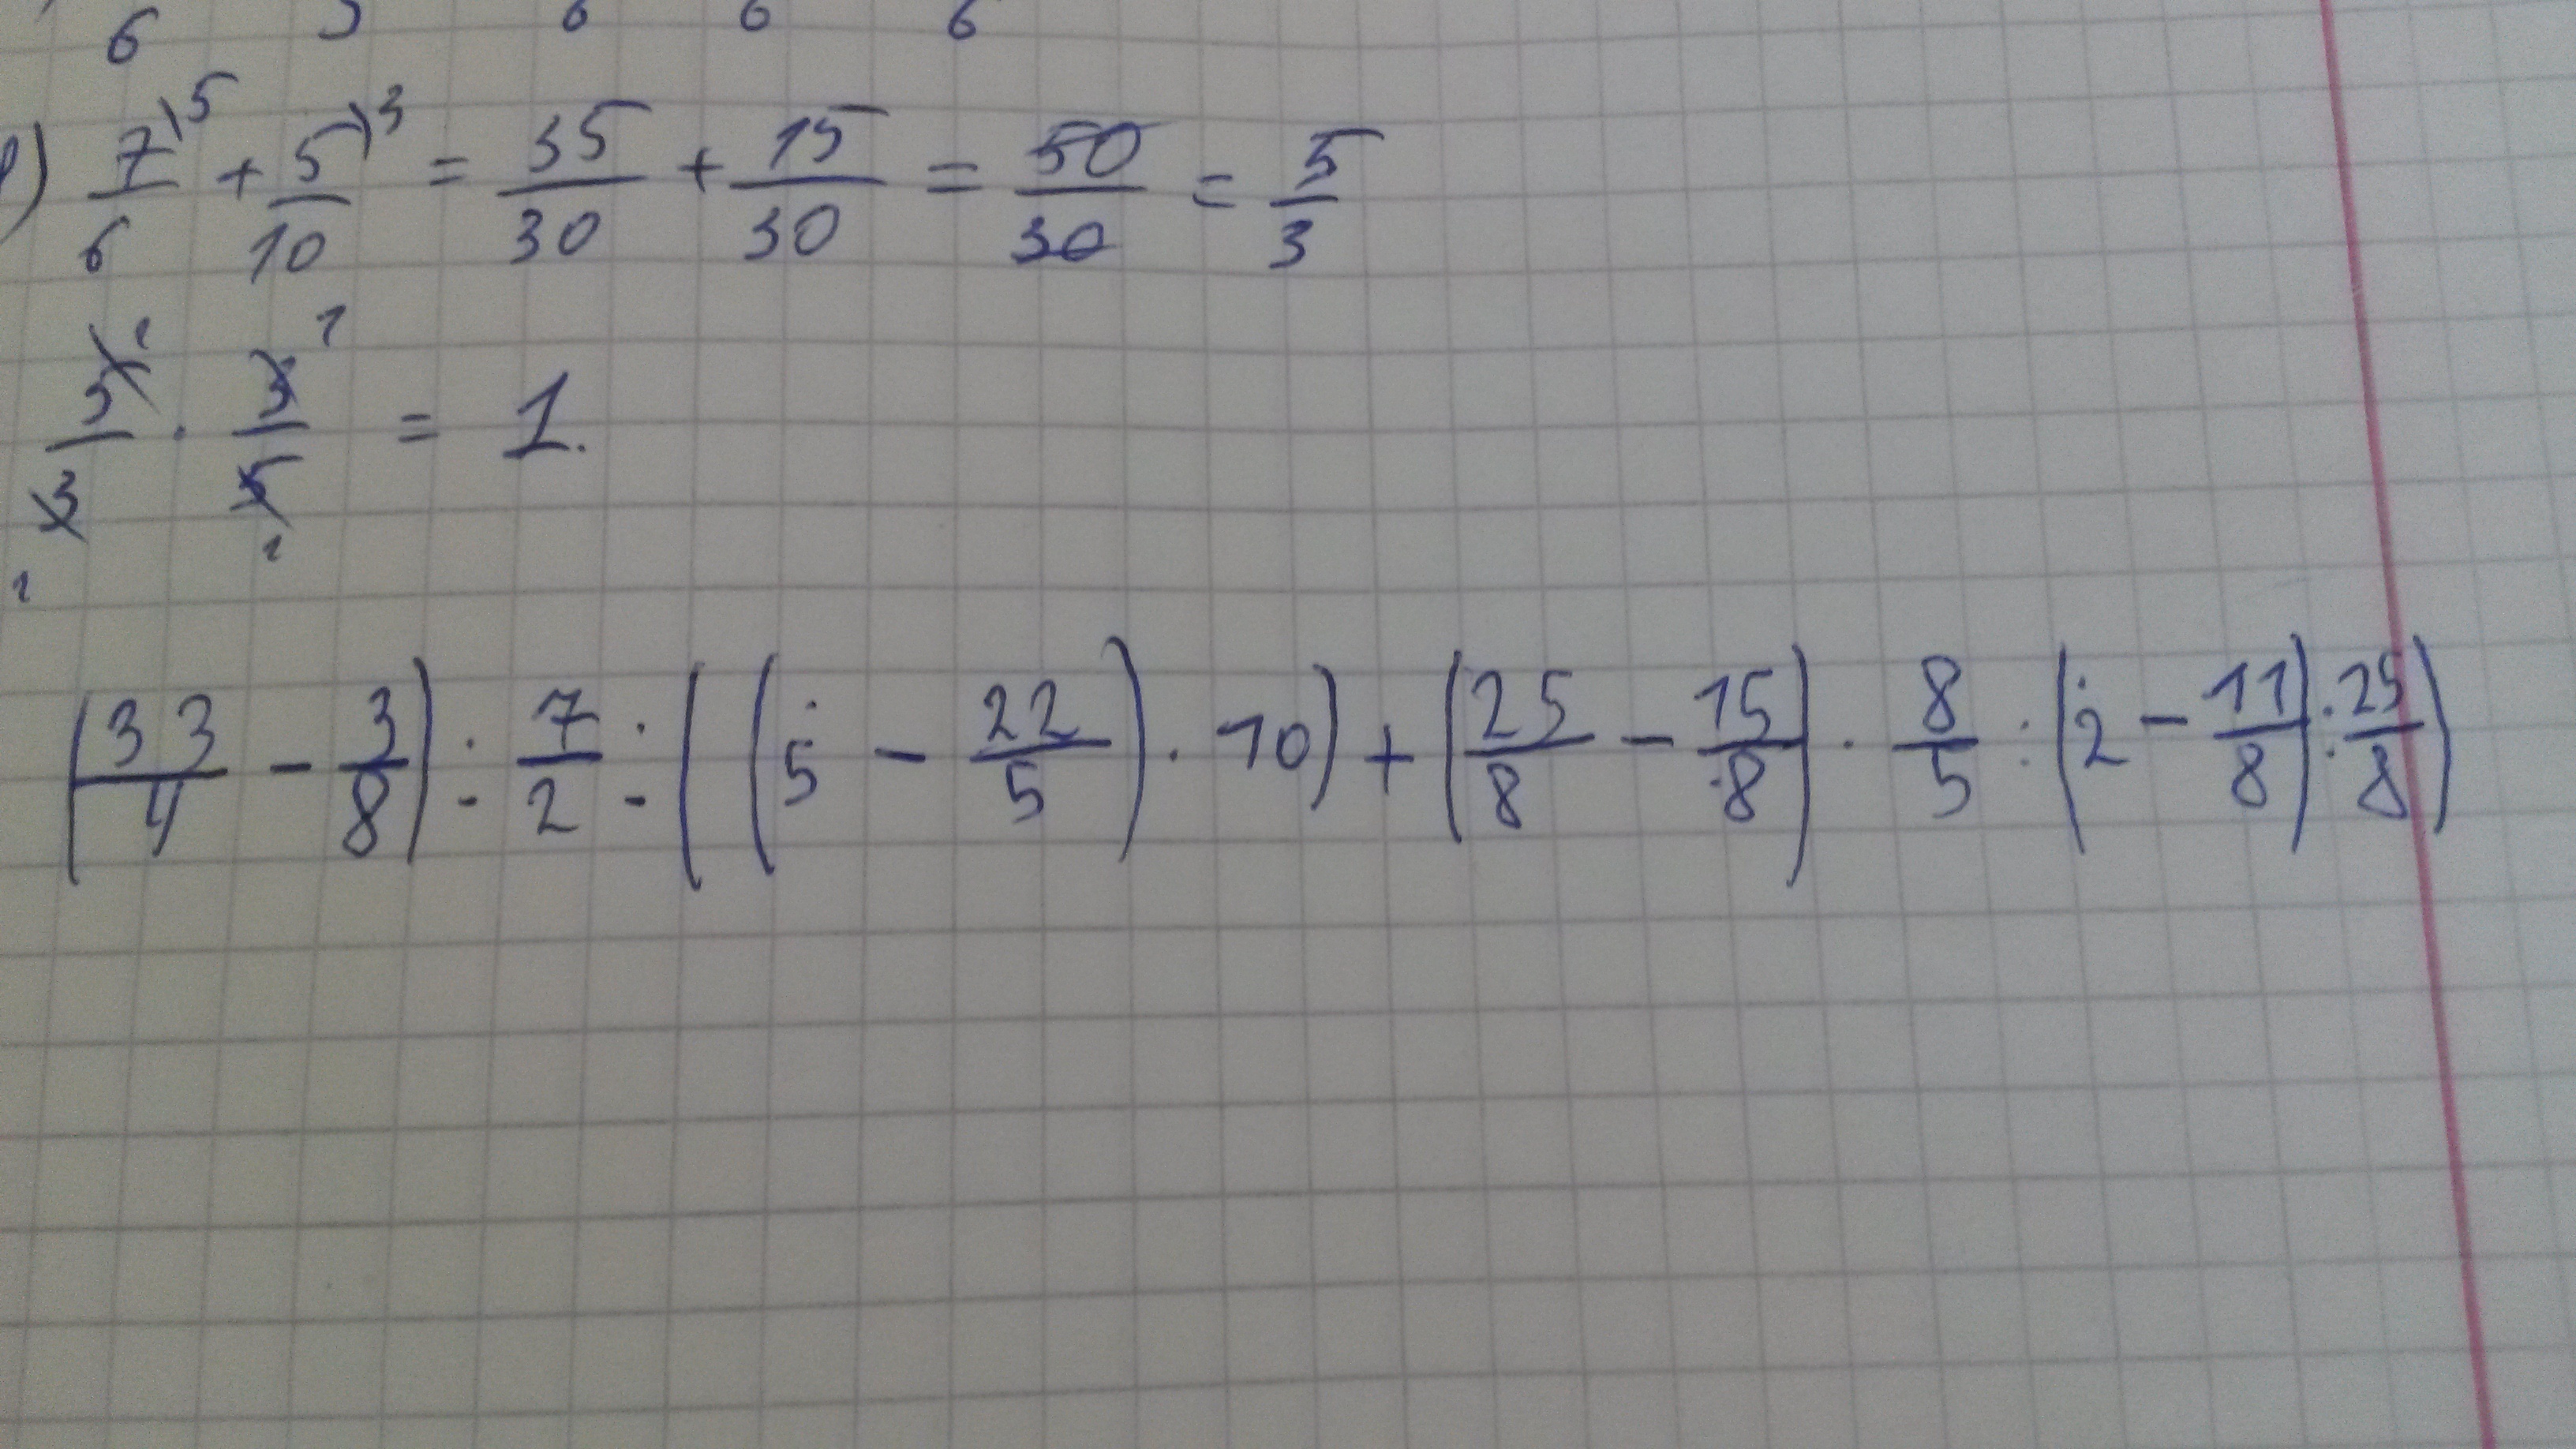 6 6 6 6
) 7/6 \5 + 5/10 \3 = 35/30 + 15/30 = 50/30 = 5/3
5/3 · 3/5 = 1.
(33/4 - 3/8) : 7/2 : ((5 - 22/5) · 10) + (25/8 - 15/8) · 8/5 : (2 - 11/8) : 25/8)